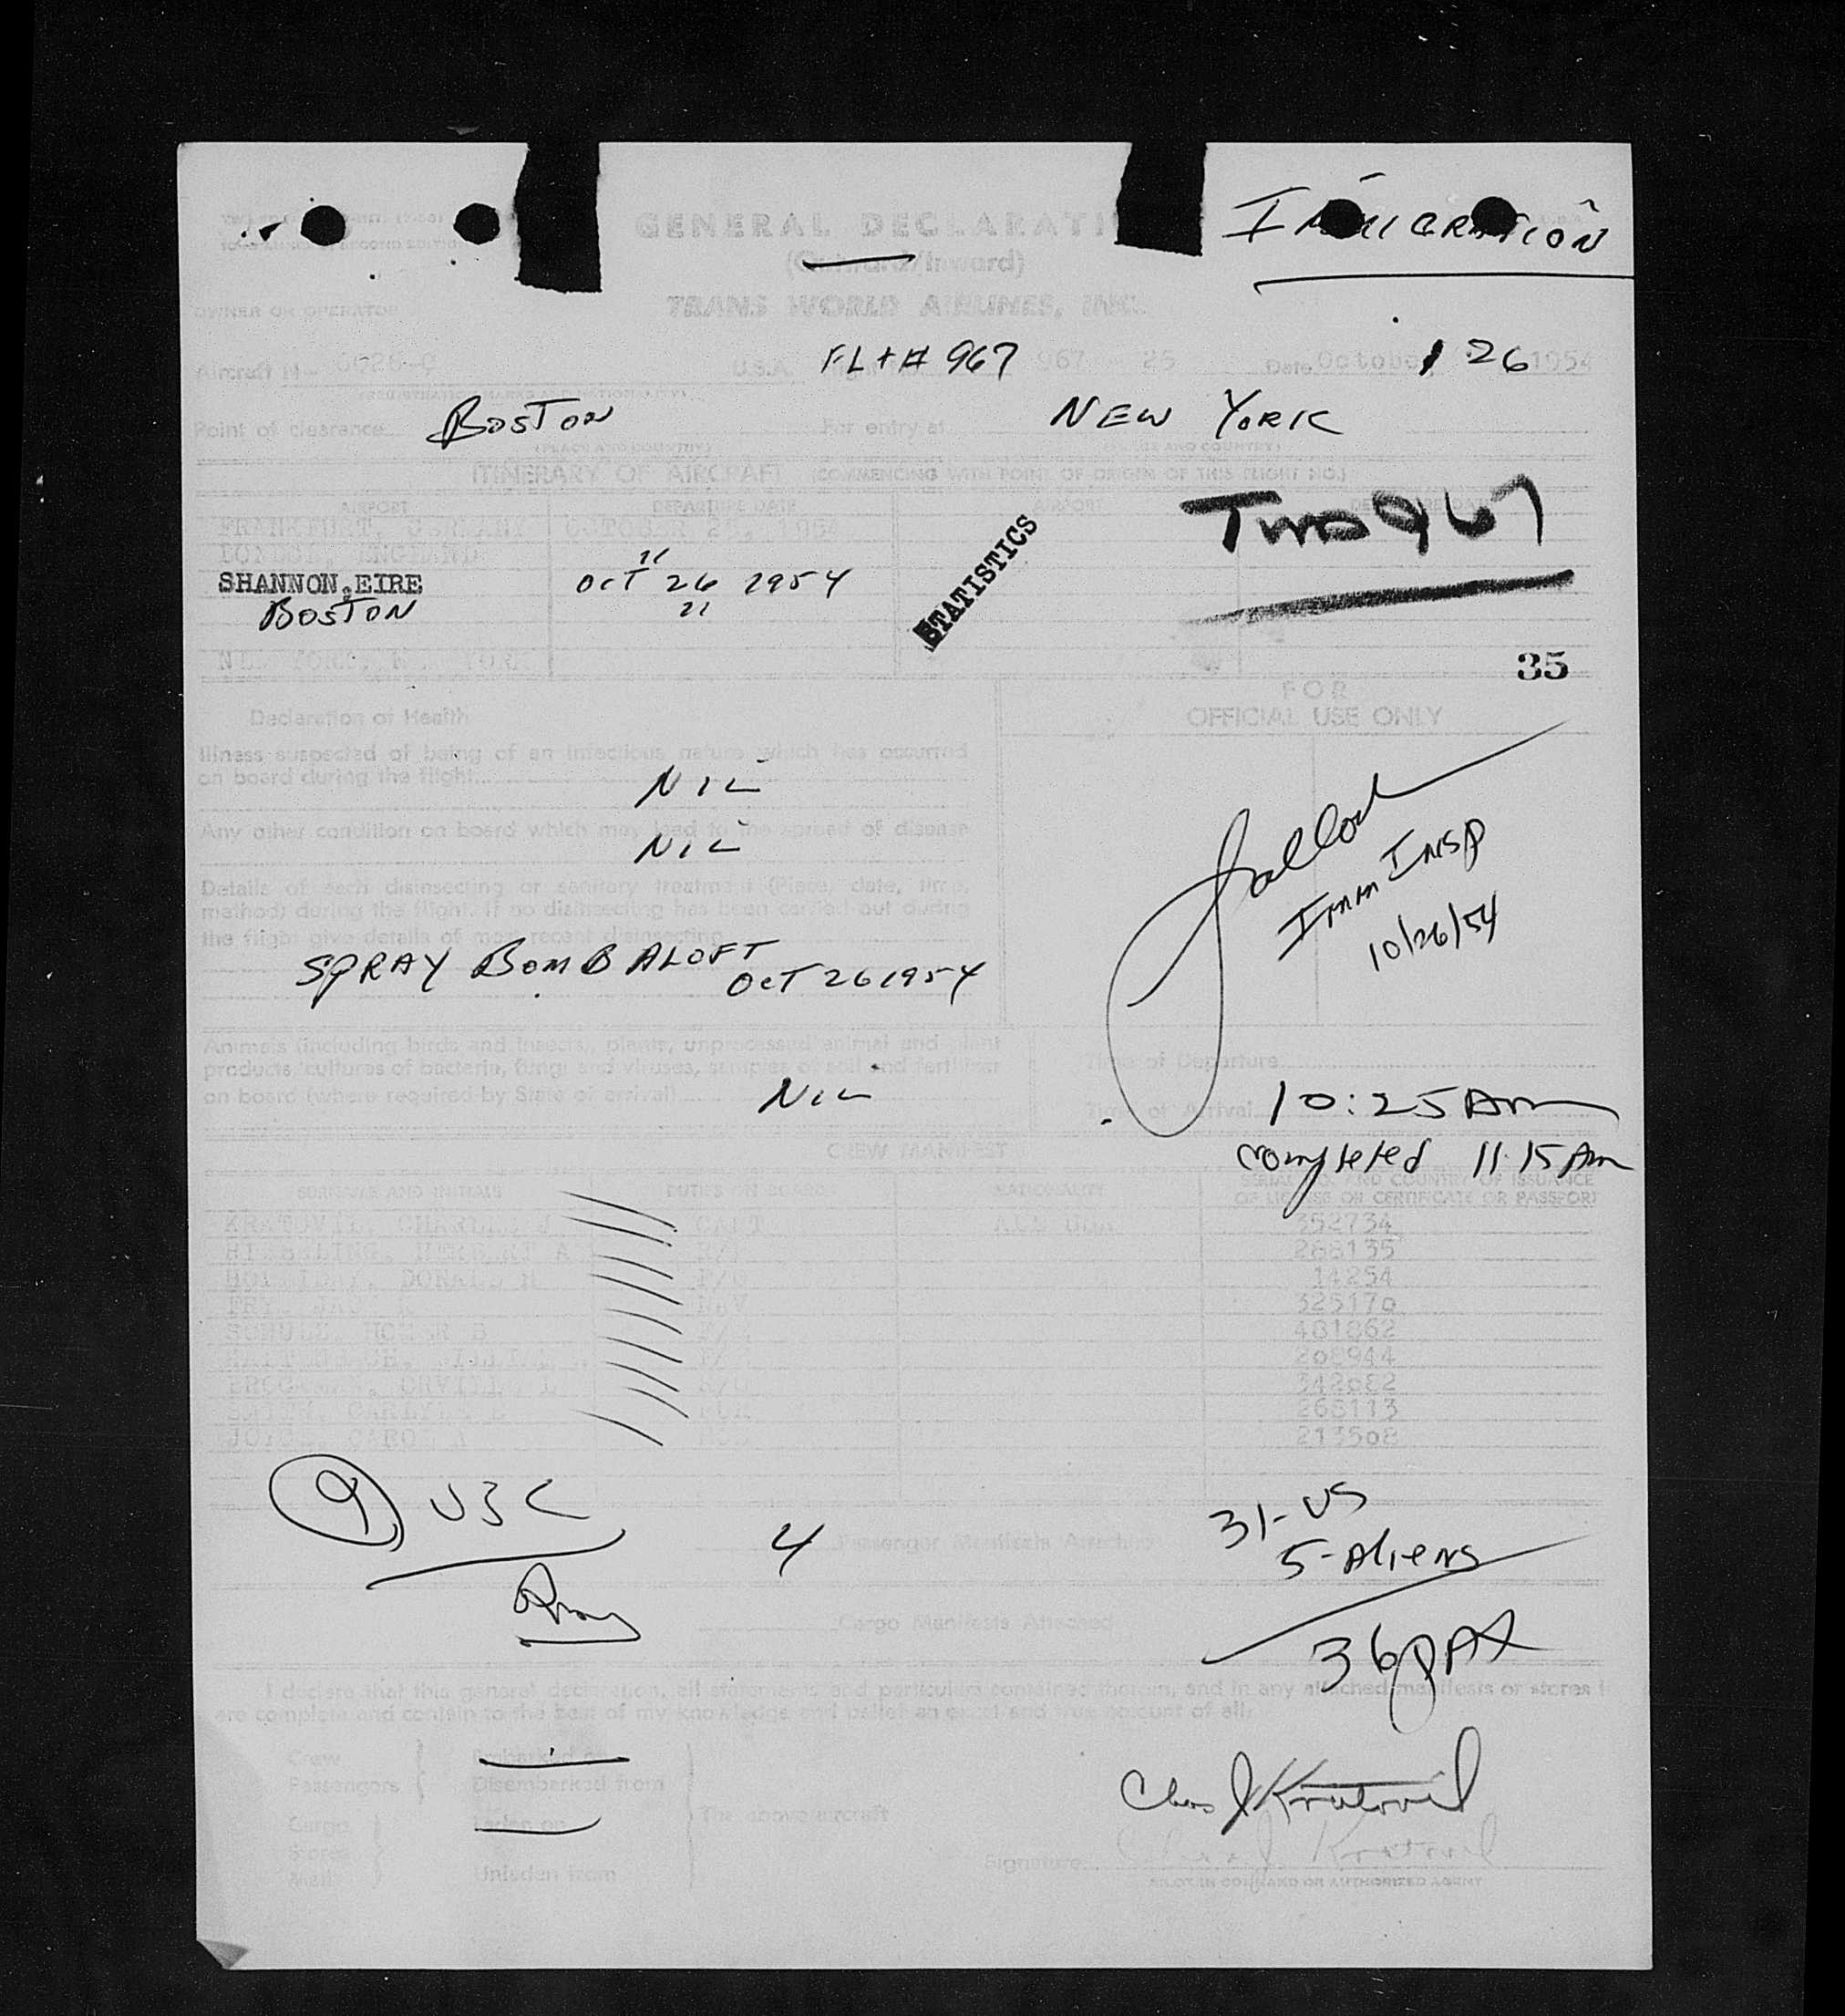 IMMIGRATION
GENERAL DECLARATI
(Outward/Inward)
TRANS WORLD AIRLINES, INC.
OWNER OR OPERATOR
Aircraft N- 6026-C U.S.A. FLT # 967 967 25 Date October 26 1954
Point of clearance BOSTON For entry at NEW YORK
(PLACE AND COUNTRY) AND COUNTRY)
ITINERARY OF AIRCRAFT (COMMENCING WITH POINT OF ORIGIN OF THIS FLIGHT NO.)
AIRPORT DEPARTURE DATE AIRPORT
FRANKFURT, GERMANY OCTOBER 25, 1954
LONDON ENGLAND "
SHANNON, EIRE OCT 26 1954
BOSTON "
NEW YORK, NEW YORK
STATISTICS
TWA 967
35
FOR
OFFICIAL USE ONLY
Declaration of Health
Illness suspected of being of an infectious nature which has occurred
on board during the flight NIL
Any other condition on board which may lead to the spread of disease
NIL
Details of each disinsecting or sanitary treatment (Place, date, time,
method) during the flight. If no disinsecting has been carried out during
the flight give details of most recent disinsecting
SPRAY BOMB ALOFT
OCT 26 1954
Imm Insp
10/26/54
Animals (including birds and insects, plants, unprocessed animal and plant
products, cultures of bacteria, fungi and viruses, samples of soil and fertilizer
on board (where required by State of arrival) NIL
Time of Departure
Time of Arrival 10:25 AM
completed 11:15 AM
CREW MANIFEST
SURNAME AND INITIALS DUTIES ON BOARD NATIONALITY SERIAL NO. AND COUNTRY OF ISSUANCE
OF LICENSE OR CERTIFICATE OR PASSPORT
KRATOVIL, CHARLES J CAPT ALL USA 352734
HERBERT A 288135
HOLLIDAY, DONALD 14254
FRY NAV 325170
HOMER B 481862
208944
BROGAMAN, ORVILLE L 342082
SMITH, CARLYNE PUR 268113
JOYCE CAROL A 213508
9 USC
4 Passenger Manifests Attached
31-US
5-Aliens
36 PAX
Cargo Manifests Attached
I declare that this general declaration, all statements and particulars contained therein, and in any attached manifests or stores l
are complete and contain to the best of my knowledge and belief an exact and true account of all:
Crew Embarked on
Passengers Disembarked from
Cargo Laden on The above aircraft
Stores
Mail Unladen from
Chas J Kratovil
Signature Chas J. Kratovil
PILOT IN COMMAND OR AUTHORIZED AGENT